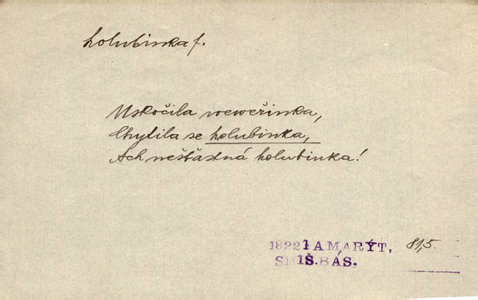 holubinka f.
Uskočila weweřinka,
Chytila se holubinka,
Ach nešťastná holubinka!
1822 AMARÝT, 81,5.
SMÍŠ. BÁS.